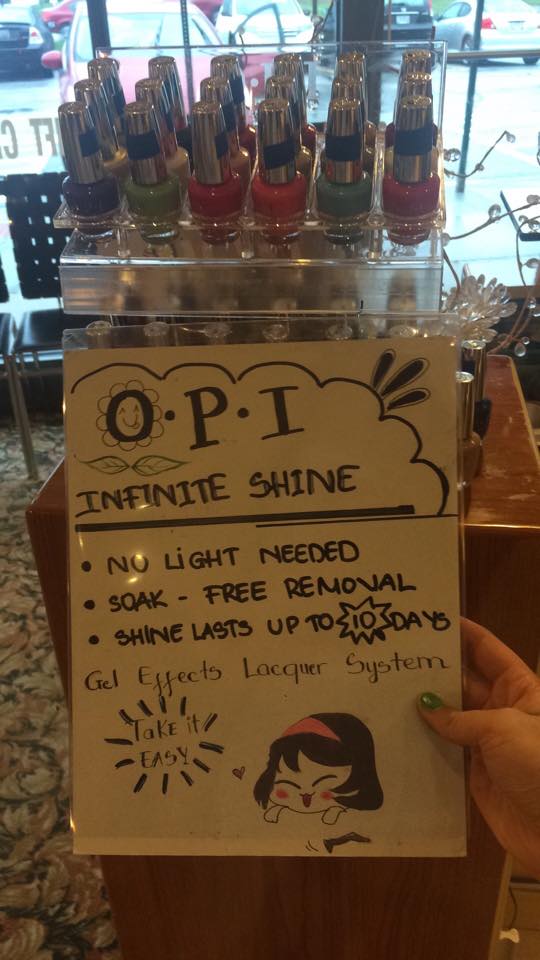 O·P·I
INFINITE SHINE
• NO LiGHT NEEDED
• SOAK - FREE REMOVAL
• SHINE LASTS UP TO 10 DAYS
Gel Effects Lacquer System
TaKE it
EASY